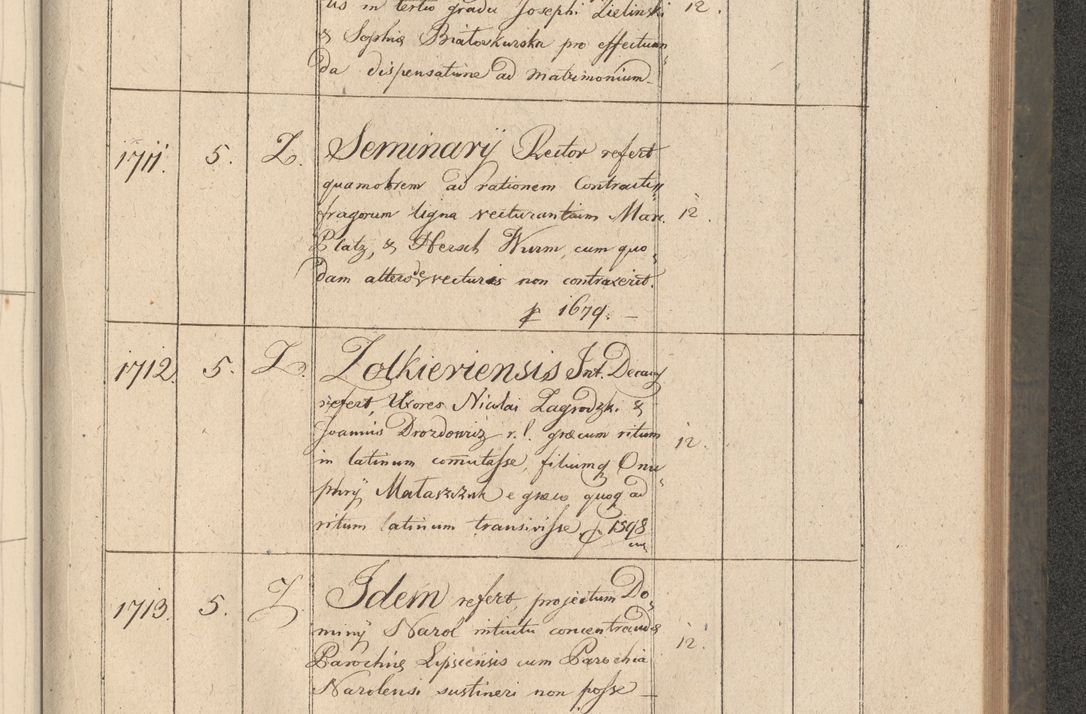 us in tertio gradu Josephi Zielinski 12.
& Sophiæ Białoskurska pro effectuan
da dispensatione ad matrimonium
1711. 5. Z. Seminarÿ Rector refert
quamobrem ad rationem Contractu
fragorum ligna vecturantium Mar. 12.
Platz, & Hersch Wurm, cum quo
dam altero de vecturis non contraxerit.
p 1679.
1712. 5. Z. Zolkieviensis Int. Decaỹ
refert, Uxores Nicolai Zagrodzk. &
Joannis Drozdowicz r. l. græcum ritum 12.
in latinum comutasse, filiumq Onu
phrÿ Mataszczuk e græco quoq ad
ritum latinum transivisse p 1598
1713. 5. Z. Idem refert, projectum Do
minÿ Narol intuitu concentrandæ 12.
Parochiæ Lipsiensis cum Parochia
Narolensi sustineri non posse